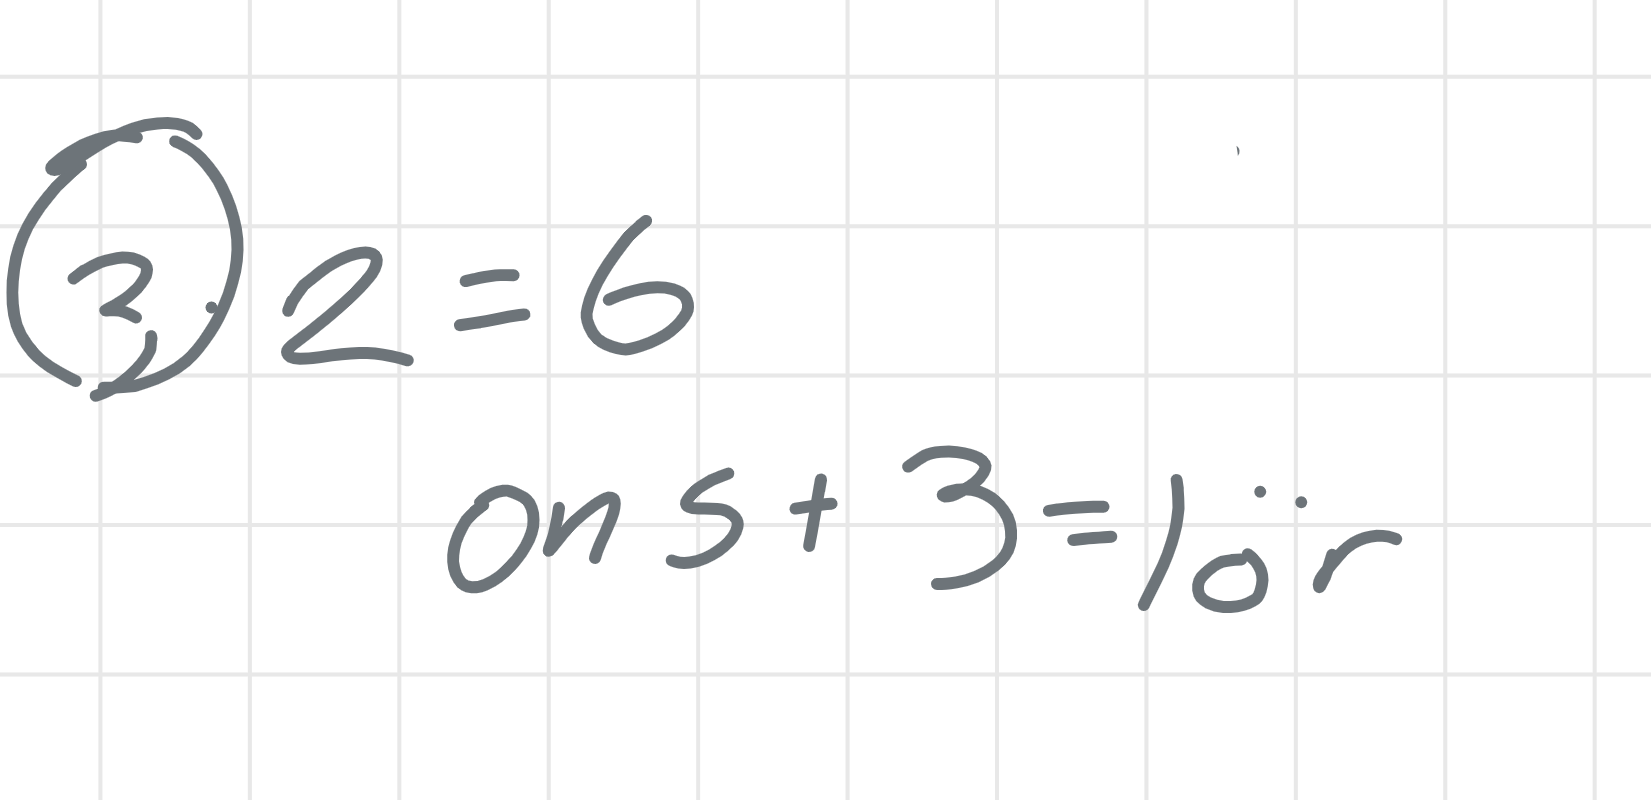 3. 2 = 6
ons + 3 = lör